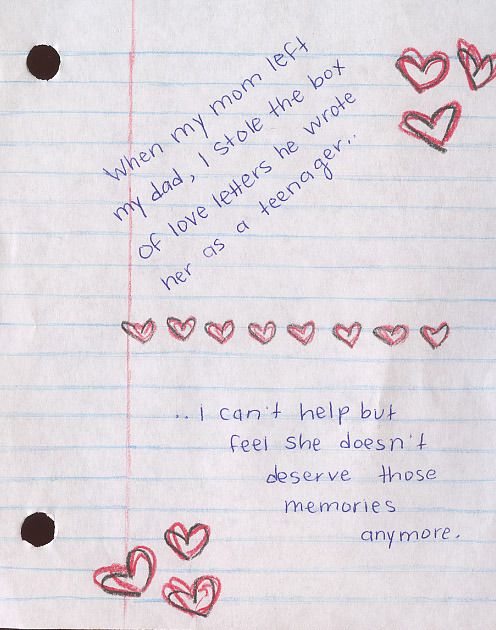 When my mom left
my dad, I stole the box
of love letters he wrote
her as a teenager..
..I can't help but
feel she doesn't
deserve those
memories
anymore.